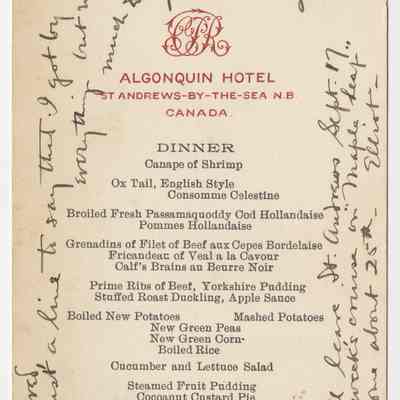 CPR
ALGONQUIN HOTEL
ST ANDREWS-BY-THE-SEA N.B
CANADA.
DINNER
Canape of Shrimp
Ox Tail, English Style
Consomme Celestine
Broiled Fresh Passamaquoddy Cod Hollandaise
Pommes Hollandaise
Grenadins of Filet of Beef aux Cepes Bordelaise
Fricandeau of Veal a la Cavour
Calf's Brains au Beurre Noir
Prime Ribs of Beef, Yorkshire Pudding
Stuffed Roast Duckling, Apple Sauce
Boiled New Potatoes Mashed Potatoes
New Green Peas
New Green Corn-
Boiled Rice
Cucumber and Lettuce Salad
Steamed Fruit Pudding
Cocoanut Custard Pie
just a line to say that I got by
everything but
much
leave St. Andrews Sept. 17
week's cruise on Maple Leaf
about 25th-
Elliot-